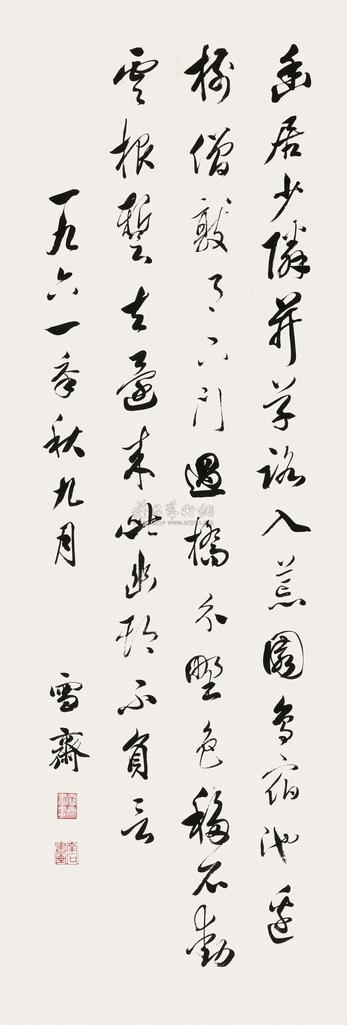 幽居少隣並草路入荒園鳥宿池邊
樹僧敲月下門過橋分野色移石動
雲根暫去還來此幽期不負言
一九六一年秋九月 雪齋